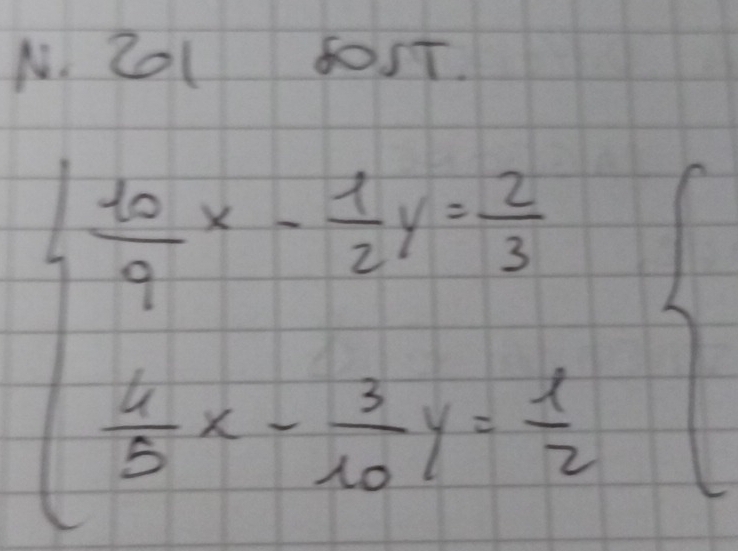 N. 201 SOST.
{ 10/9 x - 1/2 y = 2/3 {
4/5 x - 3/10 y = 1/2